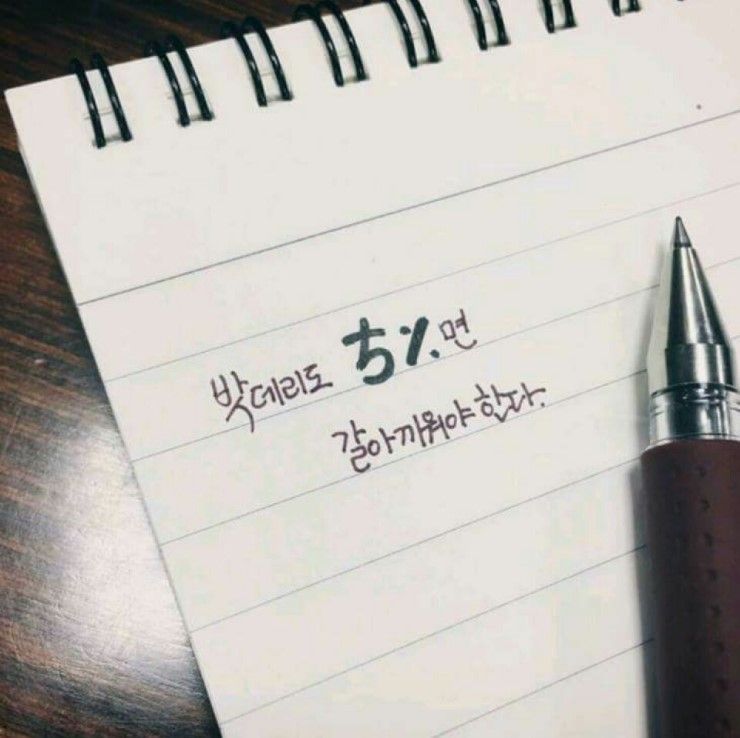 밧데리도 5%면
갈아끼워야 한다.